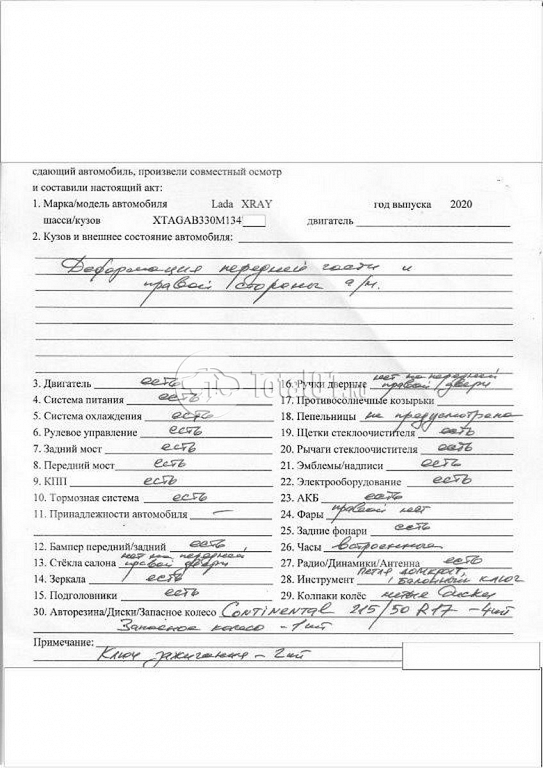 сдающий автомобиль, произвели совместный осмотр
и составили настоящий акт:
1. Марка/модель автомобиля Lada XRAY год выпуска 2020
шасси/кузов XTAGAB330M134 двигатель
2. Кузов и внешнее состояние автомобиля:
Деформация передней части и
правой стороны а/м.
Total01.ru
3. Двигатель есть 16. Ручки дверные нет на передней правой двери
4. Система питания есть 17. Противосолнечные козырьки
5. Система охлаждения есть 18. Пепельницы не предусмотрена
6. Рулевое управление есть 19. Щетки стеклоочистителя есть
7. Задний мост есть 20. Рычаги стеклоочистителя есть
8. Передний мост есть 21. Эмблемы/надписи есть
9. КПП есть 22. Электрооборудование есть
10. Тормозная система есть 23. АКБ есть
11. Принадлежности автомобиля — 24. Фары правой нет
25. Задние фонари есть
12. Бампер передний/задний есть 26. Часы встроенные
13. Стёкла салона нет на передней правой двери 27. Радио/Динамики/Антенна есть
14. Зеркала есть 28. Инструмент домкрат, балонный ключ
15. Подголовники есть 29. Колпаки колёс литые диски
30. Авторезина/Диски/Запасное колесо Continental 215/50 R17 – 4шт
Запасное колесо – 1 шт
Примечание:
Ключ зажигания – 2 шт